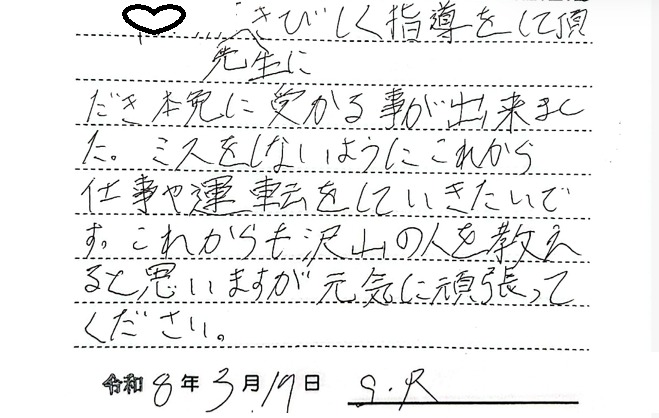 きびしく指導をして頂
先生に
だき本免に受かる事が出来まし
た。ミスをしないようにこれから
仕事や運転をしていきたいで
す。これからも沢山の人を教え
ると思いますが元気に頑張って
ください。
令和8年3月19日 S.R